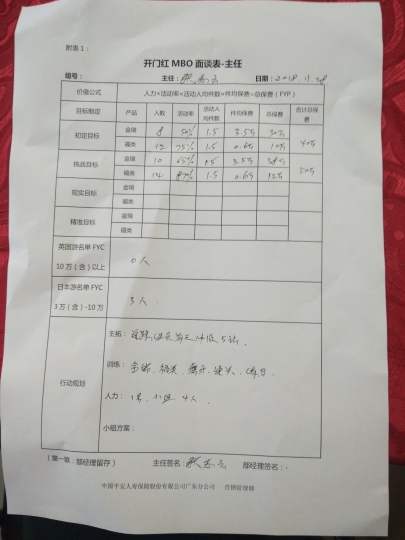 附表1：
开门红 MBO 面谈表-主任
组号： 主任： 日期：2018.11.28
价值公式 人力×活动率×活动人均件数×件均保费=总保费（FYP）
目标制定 产品 人数 活动率 活动人均件数 件均保费 总保费 合计总保费
初定目标 金瑞 8 50% 1.5 3.5万 30万 40万
福类 12 75% 1.5 0.6万 10万
挑战目标 金瑞 10 65% 1.5 3.5万 38万 50万
福类 14 1.5 0.6万 12万
现实目标 金瑞
福类
精准目标 金瑞
福类
英国游名单 FYC
10 万（含）以上 0人
日本游名单 FYC
3 万（含）-10 万 3人
行动规划
主拓：
训练：金瑞、福类、
人力： 4人、
小组方案：
（第一联：部经理留存） 主任签名： 部经理签名：
中国平安人寿保险股份有限公司广东分公司 营销管理部